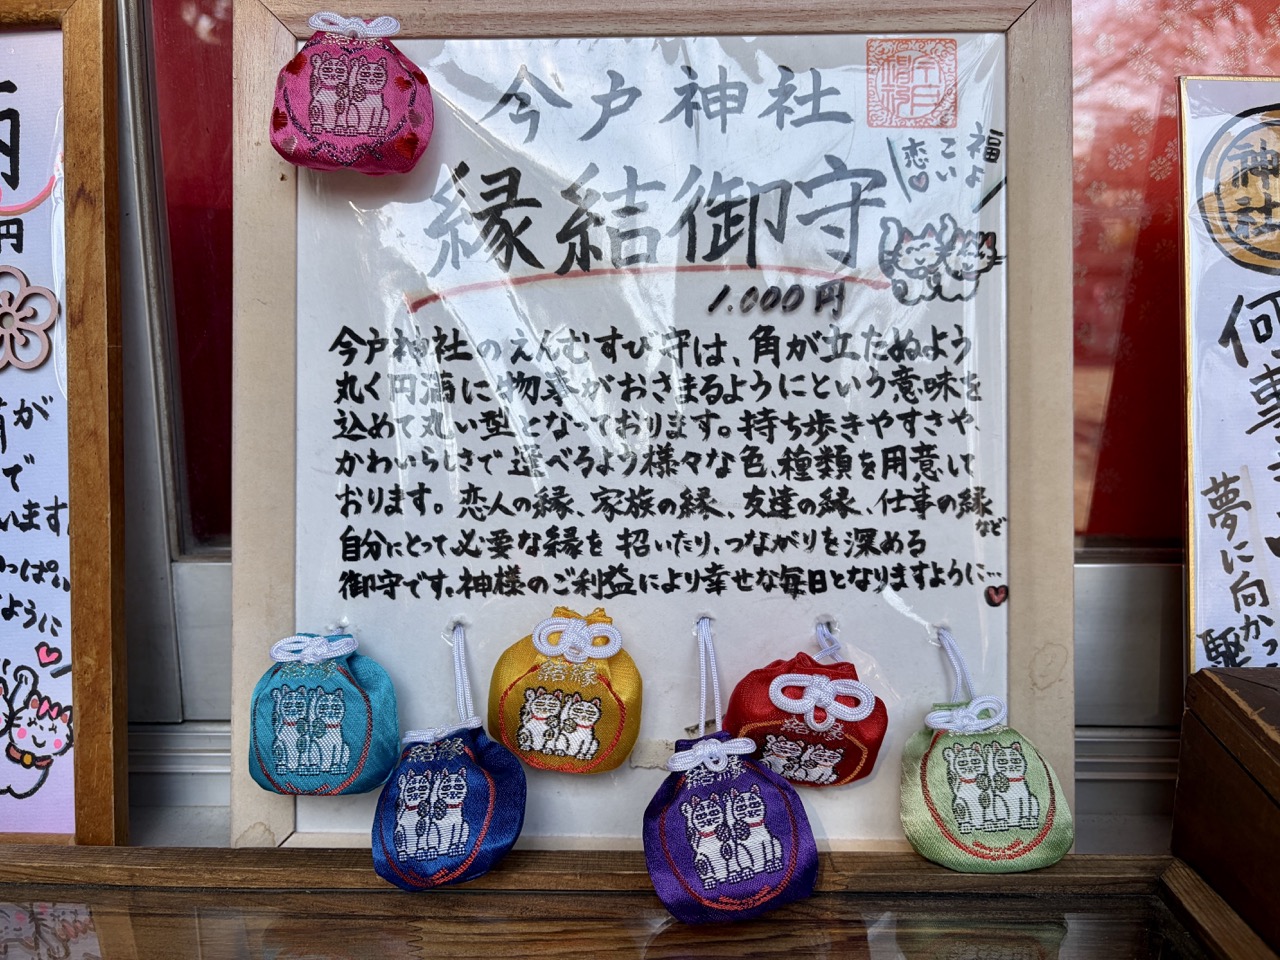 今戸神社
福よ
こい
恋
縁結御守
1.000円
今戸神社のえんむすび守は、角が立たぬよう
丸く円満に物事がおさまるようにという意味を
込めて丸い型となっております。持ち歩きやすさや、
かわいらしさで選べるよう様々な色、種類を用意して
おります。恋人の縁、家族の縁、友達の縁、仕事の縁
など
自分にとって必要な縁を招いたり、つながりを深める
御守です。神様のご利益により幸せな毎日となりますように…
円
が
で
います
ように
神社
何事
夢に向かっ
駆